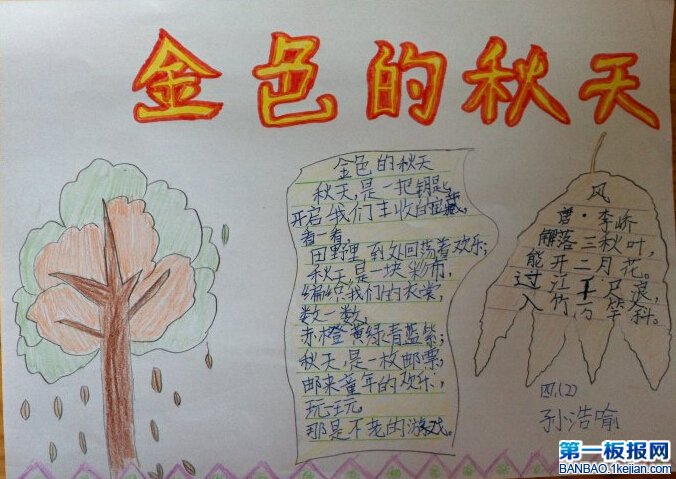 金色的秋天
金色的秋天
秋天,是一把钥匙,
开启我们丰收的宝藏,
看一看,
田野里,到处回荡着欢乐;
秋天,是一块彩布,
编给我们的衣裳,
数一数,
赤橙黄绿青蓝紫;
秋天,是一枚邮票,
邮来童年的欢乐,
玩一玩,
那是不老的游戏。
风
唐·李峤
解落三秋叶,
能开二月花。
过江千尺浪,
入竹万竿斜。
四.(2)
孙浩喻
第一板报网
BANBAO.1kejian.com